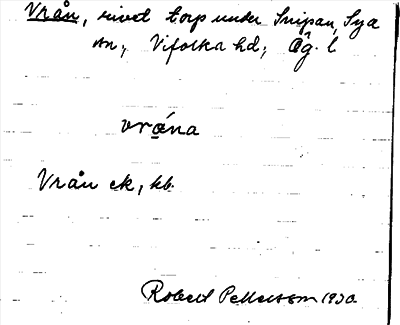 Vrån, rivet torp under Snipan, Sya
sn, Vifolka hd, Ög. l
vrǻna
Vrån ek, kb.
Robert Pettersson 1930